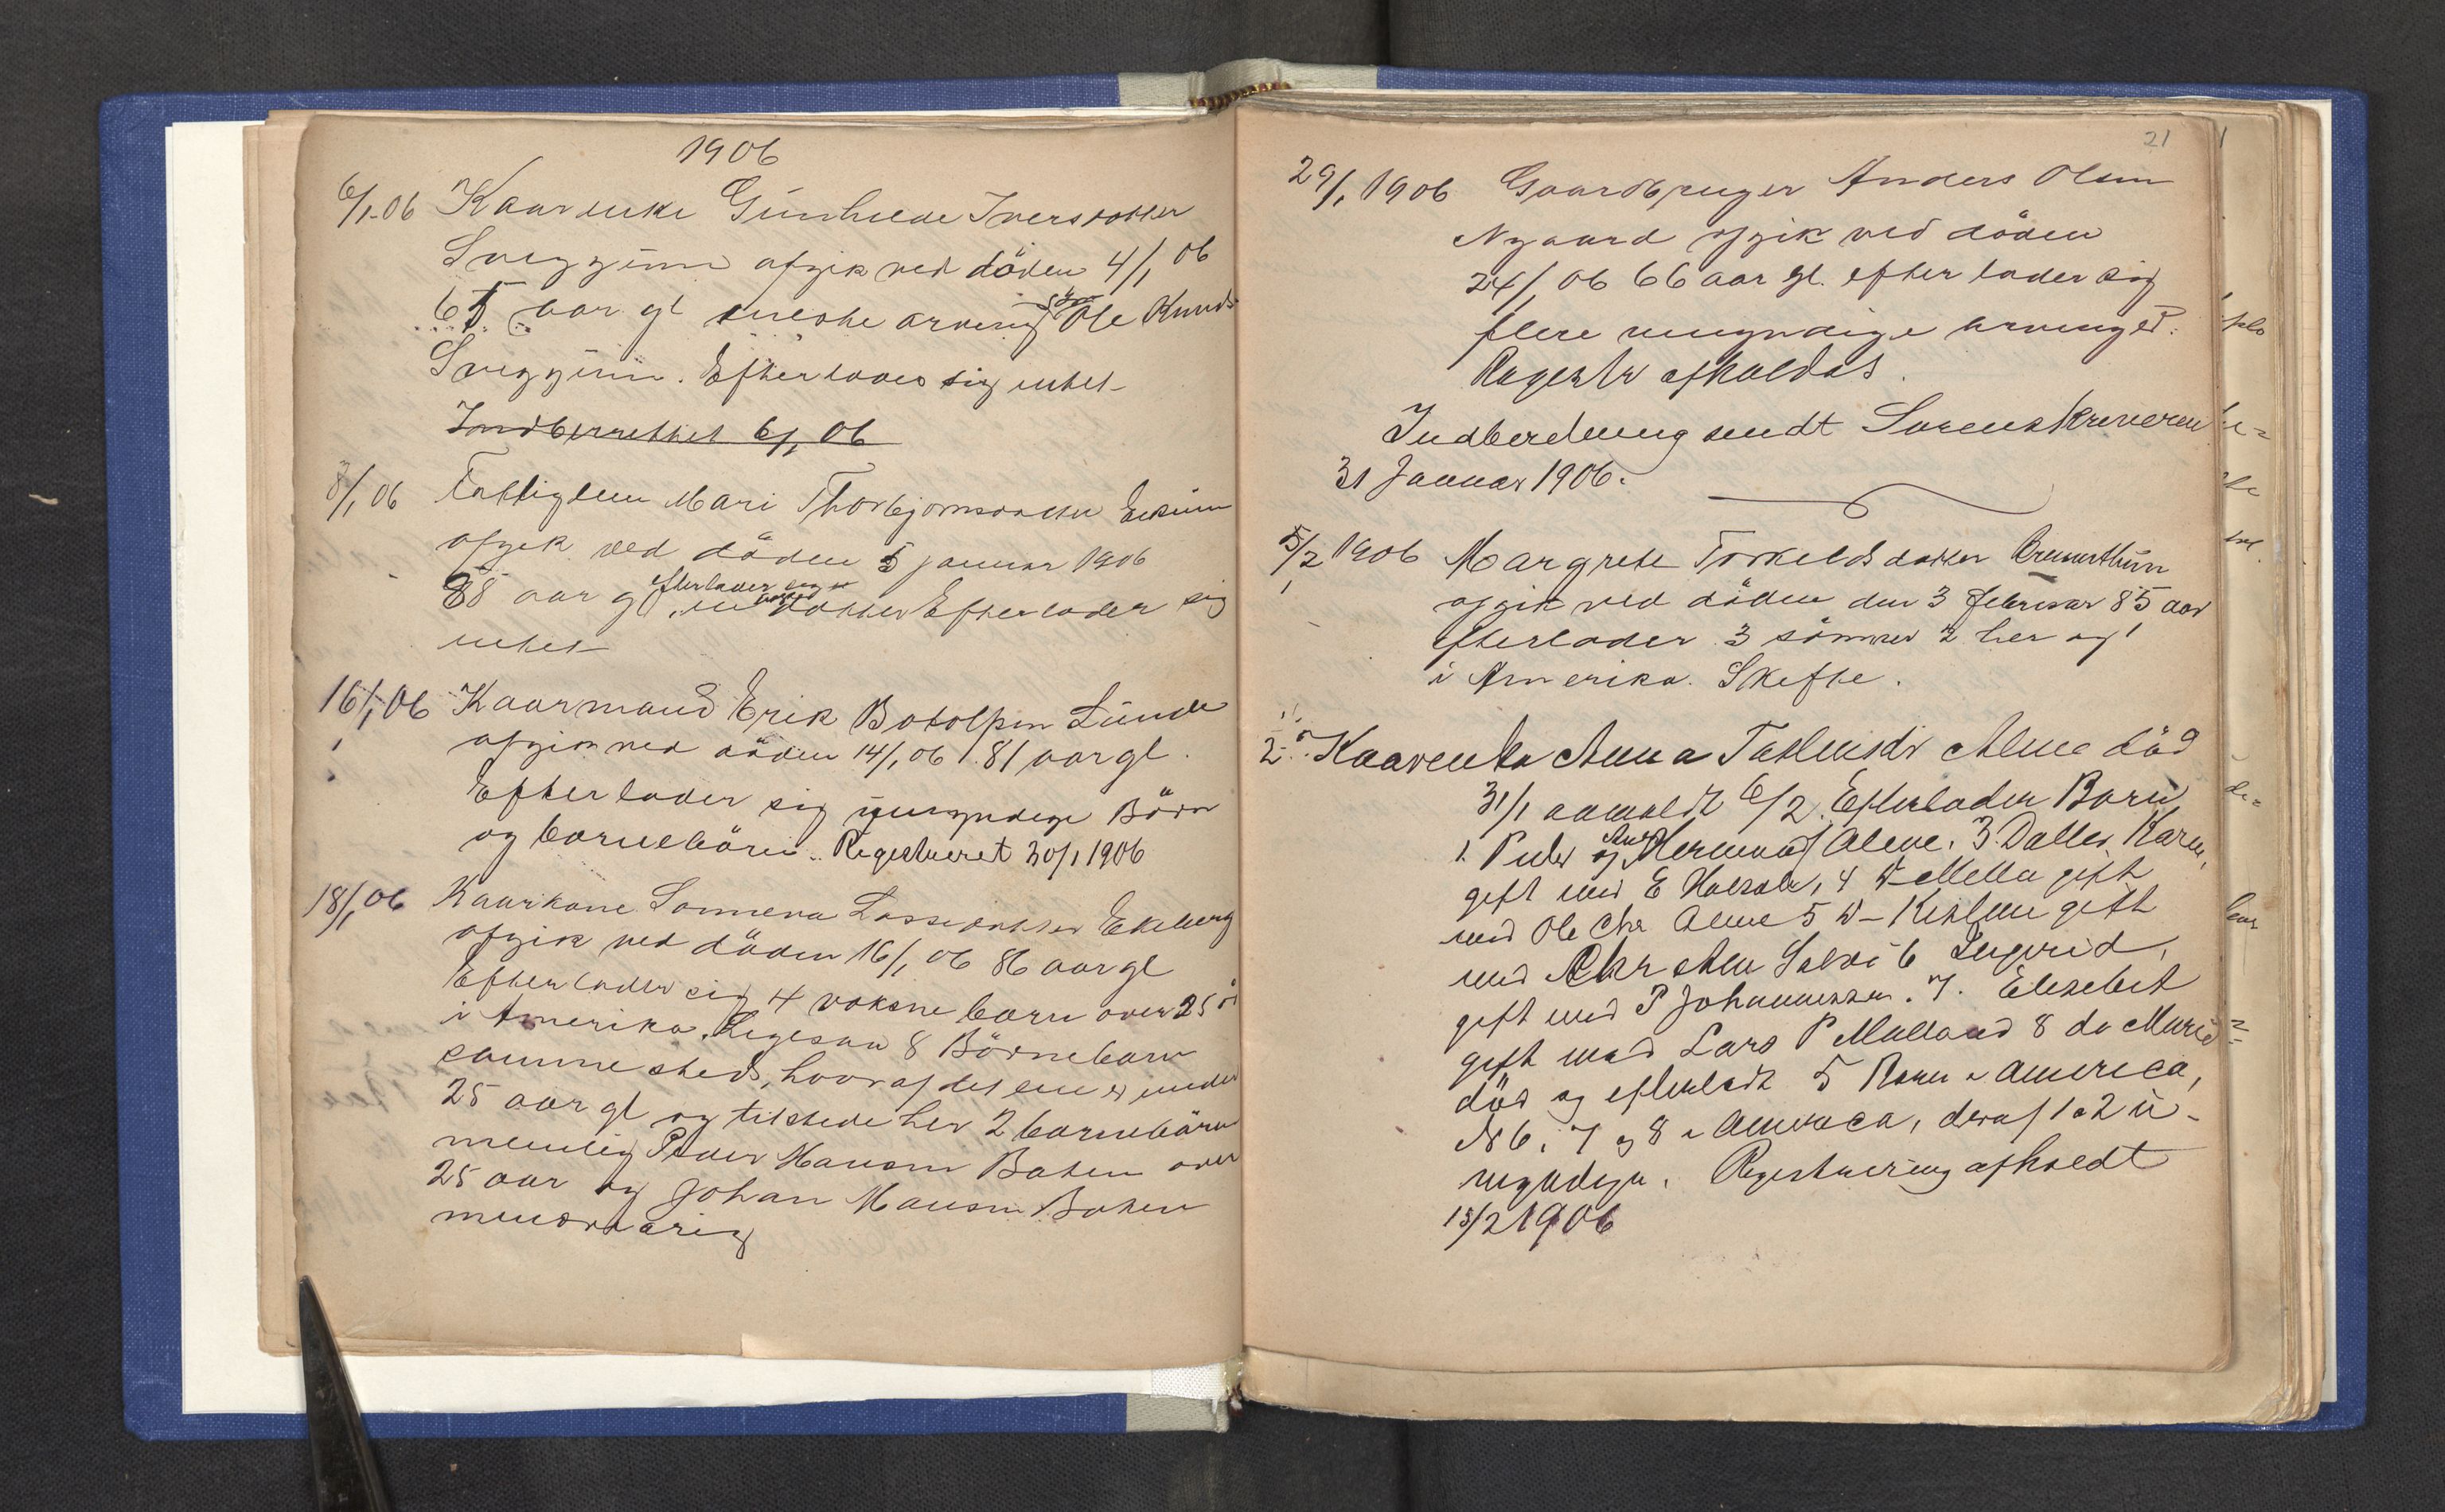 1906
6/1-06 Kaarenke Gunhilde Iversdatter
Sveggum afgik ved döden 4/1 06
65 aar gl eneste arving sön Ole Knuds
Sveggum. Efterlades sig intet
Indberettet 6/1 06
8/1 06 Fattiglem Mari Thorbjornsdatter
afgik ved döden 5 januar 1906
88 aar gl efterlader sig en datter Efterlader sig
intet
16/1 06 Kaarmand Erik Botolfsen Lunde
afgik ved döden 14/1 06 81 aar gl.
Efterlader sig umyndige Börn
og bornebörn. Registreret 30/1 1906
18/1 06 Kaarkone Sonneva Lassedatter Ekeberg
afgik ved döden 16/1 06 86 aar gl
Efterlader sig 4 voksne born over 25
i Amerika. Ligesaa 8 Börneborn
sammesteds, hvoraf det ene er under
25 aar gl og tilstede her 2 bornebörn
menlig Peder Hansen Baken over
25 aar og Johan Hansen Baken
mindreaarig
21
29/1 1906 Gaardbruger Anders Olsen
Nygaard afgik ved döden
24/1 06 66 aar gl. efterlader sig
flere umyndige arvinger.
Registr afholdes.
Indberetning sendt Sorenskriveren
31 Januar 1906.
5/2 1906 Margrete Torkeldsdatter
afgik ved döden den 3 februar 85 aar
efterlader 3 sönner 2 her og 1
i Amerika. Skifte.
Kaarenke Anna Taklesdr Alme död
31/1 anmeldt 6/2. Efterlader Born
1. Peder og Herman Alme. 3. Datter Karn,
gift med E 4 D- Metta gift
med Ole Chr Alme 5 D- gift
med 6 Ingrid,
gift med P Johannessen. 7. Elisebet
gift med Lars P Molland 8 do Marie
död og efterladt 5 Born i America,
No 6, 7 og 8 i America, deraf 1 a 2 u-
myndige. Registrering afholdt
15/2 1906